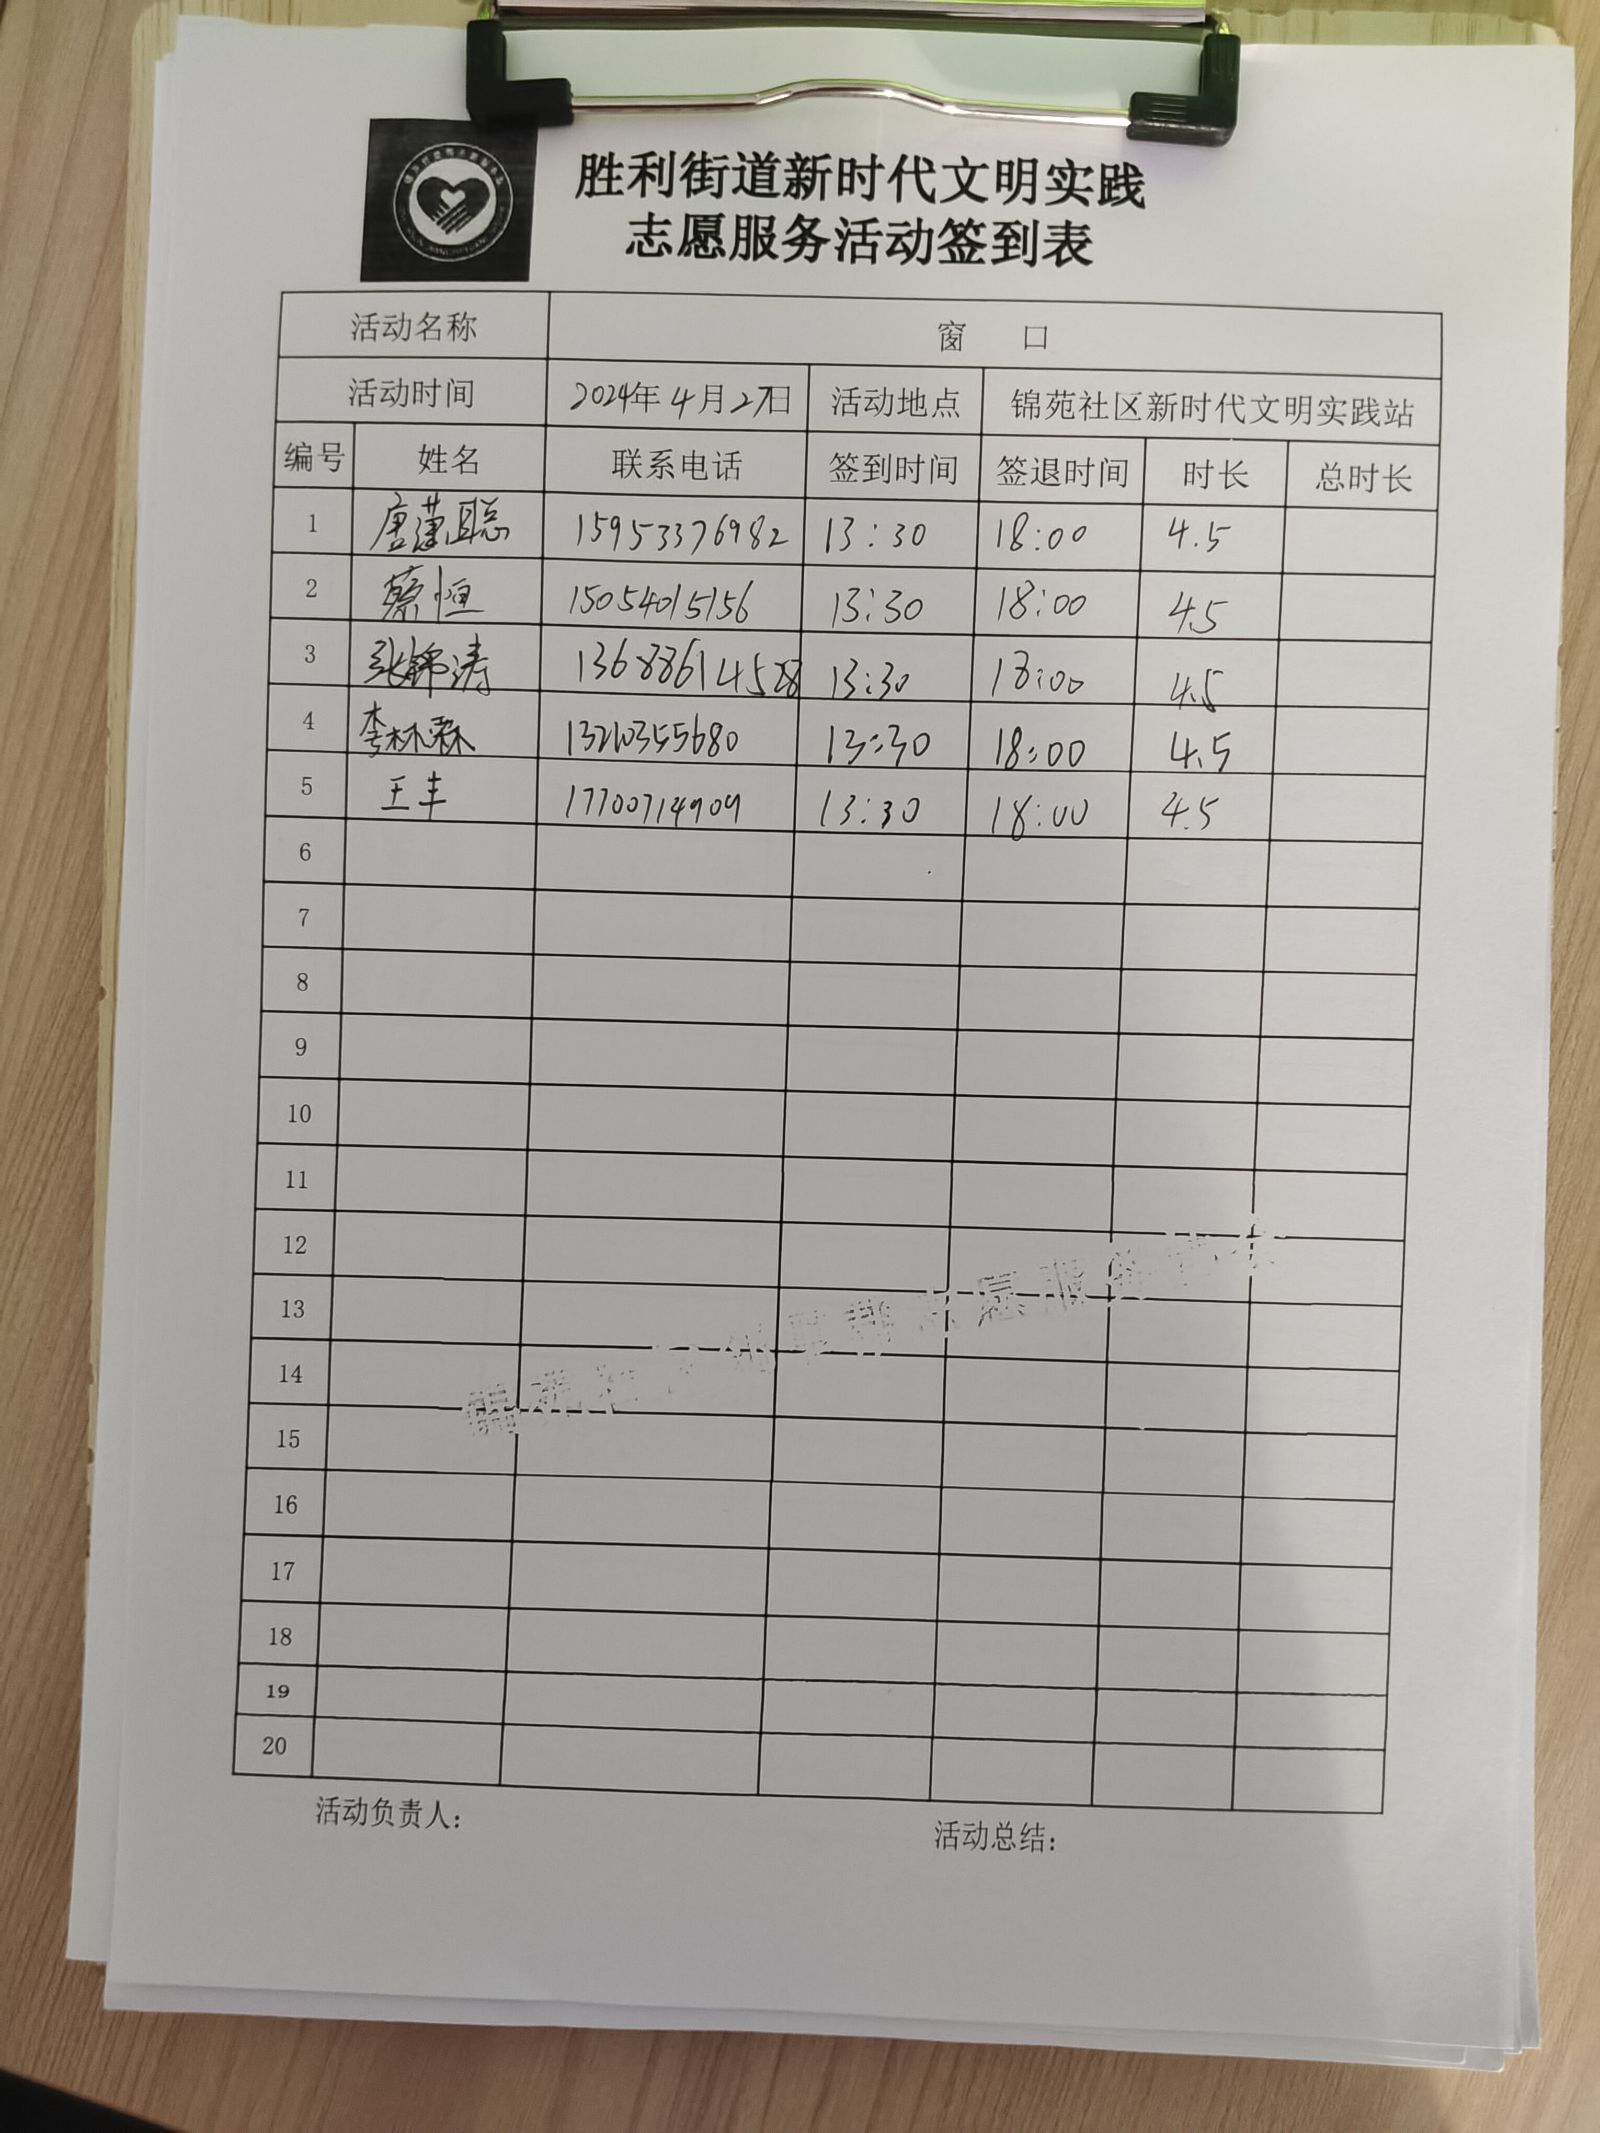 胜利街道新时代文明实践
志愿服务活动签到表
活动名称 窗 口
活动时间 2024年4月27日 活动地点 锦苑社区新时代文明实践站
编号 姓名 联系电话 签到时间 签退时间 时长 总时长
1 唐潇聪 15953376982 13:30 18:00 4.5
2 蔡恒 15054015156 13:30 18:00 4.5
3 张锦涛 13688614528 13:30 18:00 4.5
4 李林霖 13210355680 13:30 18:00 4.5
5 王丰 17700714909 13:30 18:00 4.5
6
7
8
9
10
11
12
13
14
15
16
17
18
19
20
活动负责人：
活动总结：